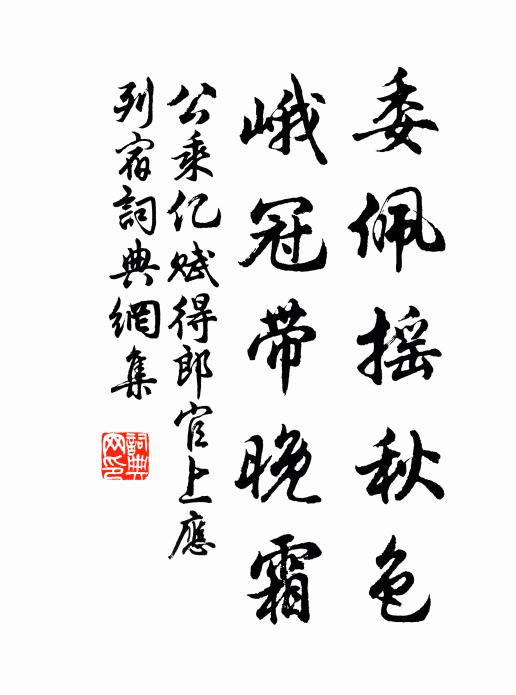 委佩摇秋色
峨冠带晚霜
公乘亿赋得郎官上應
列宿詞典網集
詞典网印